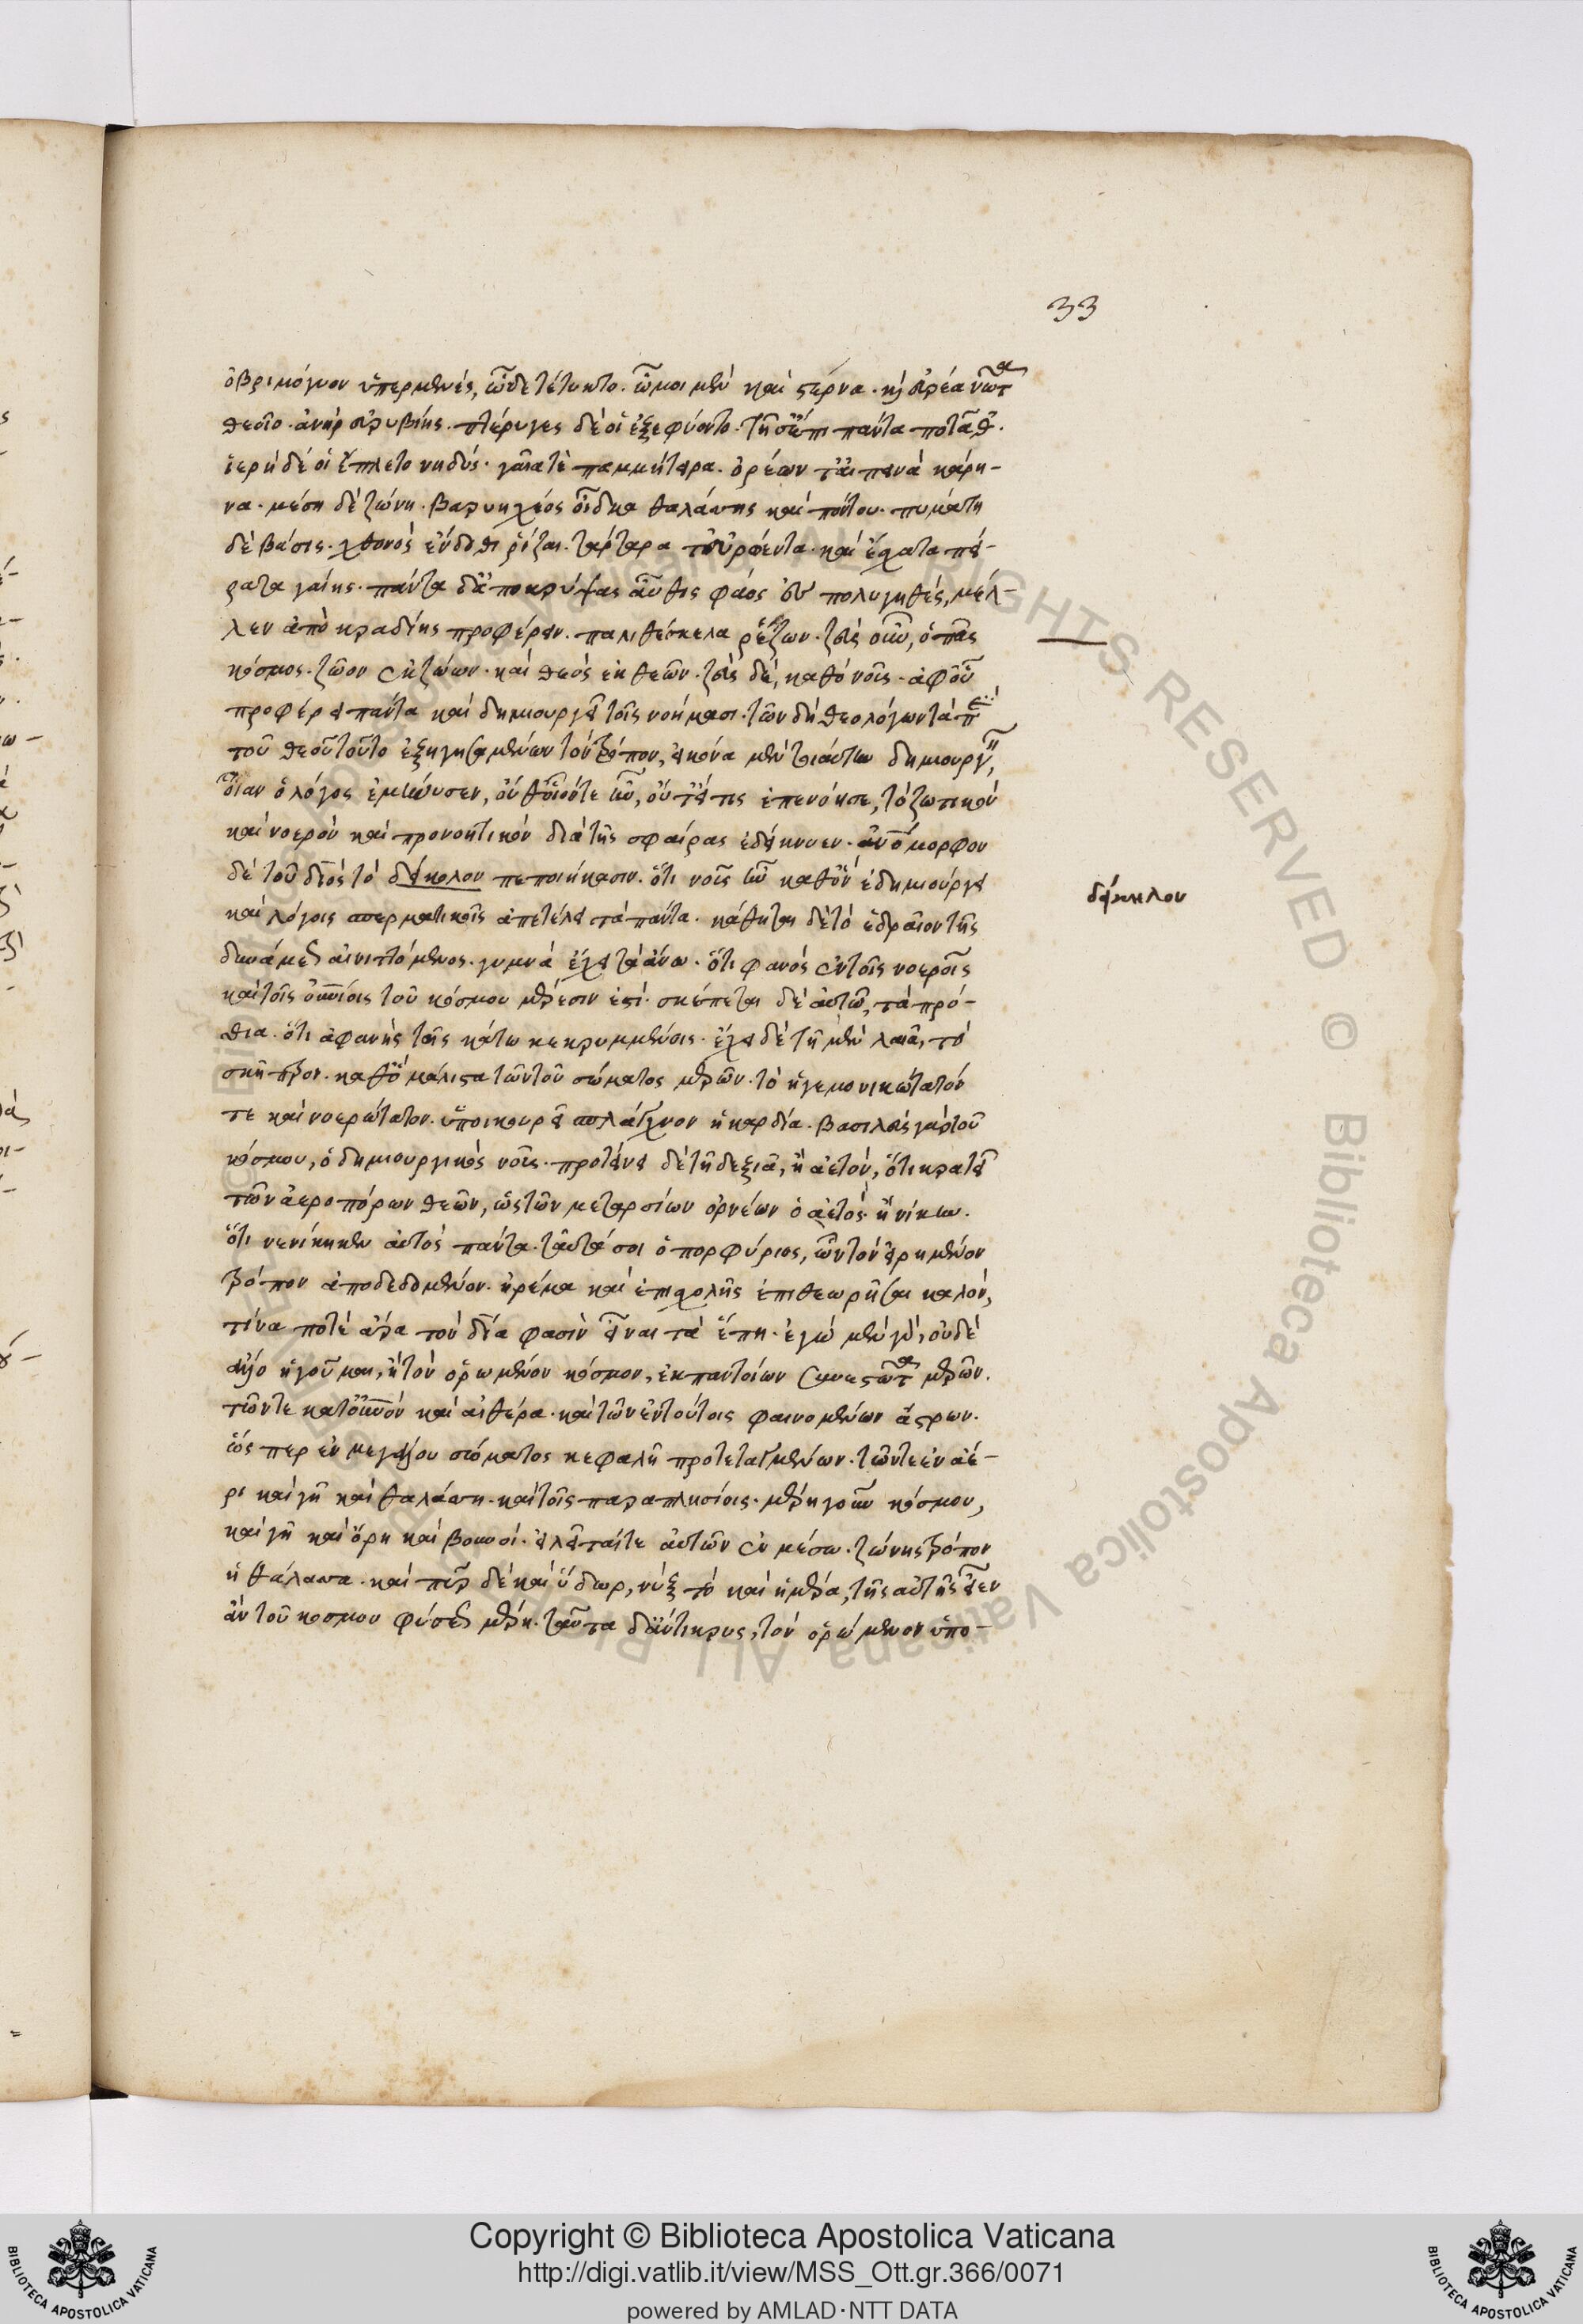 33
ὀβριμόγυον ὑπερμενές, ὧδε τέτυκται. ὦμοι μὲν καὶ στέρνα. καὶ εὐρέα νῶτα
θεοῖο. ἀὴρ εὐρυβίης. πτέρυγες δέ οἱ ἐξεφύοντο. τῇς ἐπὶ πάντα ποτᾶθ.
ἱερὴ δέ οἱ ἔπλετο νηδύς. γαῖά τε παμμήτειρα. ὀρέων τ' αἰπεινὰ κάρη-
να. μέση δὲ ζώνη. βαρυηχέος οἶδμα θαλάσσης καὶ πόντου. πυμάτη
δὲ βάσις. χθονὸς ἔνδοθι ῥίζαι. τάρταρα τ' εὐρώεντα. καὶ ἔσχατα πεί-
ρατα γαίης. πάντα δ' ἀποκρύψας αὖθις φάος ἐς πολυγηθές, μέλ-
λεν ἀπὸ κραδίης προφέρειν. πάλι θέσκελα ῥέζων. ζεὺς οὖν, ὁ πᾶς
κόσμος. ζῶον ἐκ ζώων. καὶ θεὸς ἐκ θεῶν. ζεὺς δέ, καθὸ νοῦς. ἀφ' οὗ
προφέρει πάντα καὶ δημιουργεῖ τοῖς νοήμασι. τῶν δὴ θεολόγων τὰ περὶ
τοῦ θεοῦ τοῦτο ἐξηγησαμένων τὸν τρόπον, εἰκόνα μὲν τοιαύτην δημιουργεῖν,
οἵαν ὁ λόγος ἐμήνυσεν, οὔθ' οἷόντε ἦν, οὔτ' εἴ τις ἐπενόησε, τὸ ζωτικὸν
καὶ νοερὸν καὶ προνοητικὸν διὰ τῆς σφαίρας ἐδείκνυεν. ἀνθρωπόμορφον
δὲ τοῦ διὸς τὸ δείκολον πεποιήκασιν. ὅτι νοῦς ἦν καθ' ὃν ἐδημιούργει
δείκηλον
καὶ λόγοις σπερματικοῖς ἀπετέλει τὰ πάντα. κάθηται δὲ τὸ ἑδραῖον τῆς
δυνάμεως αἰνιττόμενος. γυμνὰ ἔχει τὰ ἄνω. ὅτι φανὸς ἐν τοῖς νοεροῖς
καὶ τοῖς οὐρανίοις τοῦ κόσμου μέρεσιν ἐστί. σκέπεται δὲ αὐτῷ, τὰ πρό-
θια. ὅτι ἀφανὴς τοῖς κάτω κεκρυμμένοις. ἔχει δὲ τῇ μὲν λαιᾷ, τὸ
σκῆπτρον. καθ' ὃ μάλιστα τῶν τοῦ σώματος μερῶν. τὸ ἡγεμονικώτατόν
τε καὶ νοερώτατον. ὑποικουρεῖ σπλάγχνον ἡ καρδία. βασιλεὺς γὰρ τοῦ
κόσμου, ὁ δημιουργικὸς νοῦς. προτείνει δὲ τῇ δεξιᾷ, ἢ ἀετόν, ὅτι κρατεῖ
τῶν ἀεροπόρων θεῶν, ὡς τῶν μεταρσίων ὀρνέων ὁ ἀετός. ἢ νίκην.
ὅτι νενίκηκεν αὐτὸς πάντα. ταῦτά σοι ὁ πορφύριος, ὧν τὸν εἰρημένον
τρόπον ἀποδεδομένον. ἠρέμα καὶ ἐπὶ σχολῆς ἐπιθεωρῆσαι καλόν,
τίνα ποτὲ ἄρα τὸν δία φασὶν εἶναι τὰ ἔπη. ἐγὼ μὲν γὰρ, οὐδὲ
ἄλλο ἡγοῦμαι, ἢ τὸν ὁρώμενον κόσμον, ἐκ παντοίων συνεστῶτα μερῶν.
τῶν τε κατ' οὐρανὸν καὶ αἰθέρα. καὶ τῶν ἐν τούτοις φαινομένων ἄστρων.
ὥσπερ ἐν μεγάλου σώματος κεφαλῇ προτεταγμένων. τῶν τε ἐν ἀέ-
ρι καὶ γῇ καὶ θαλάσσῃ. καὶ τοῖς παραπλησίοις. μέρη γοῦν κόσμου,
καὶ γῆ καὶ ὄρη καὶ βουνοί. εἰλεῖταί τε αὐτῶν ἐν μέσῳ. ζώνης τρόπον
ἡ θάλασσα. καὶ πῦρ δὲ καὶ ὕδωρ, νύξ τε καὶ ἡμέρα, τῆς αὐτῆς εἶεν
ἂν τοῦ κόσμου φύσεως μέρη. ταῦτα δ' ἄντικρυς, τὸν ὁρώμενον ὑπο-
RIGHTS RESERVED © Biblioteca Apostolica Vaticana ALL
Copyright © Biblioteca Apostolica Vaticana
http://digi.vatlib.it/view/MSS_Ott.gr.366/0071
powered by AMLAD·NTT DATA
BIBLIOTECA APOSTOLICA VATICANA
BIBLIOTECA APOSTOLICA VATICANA